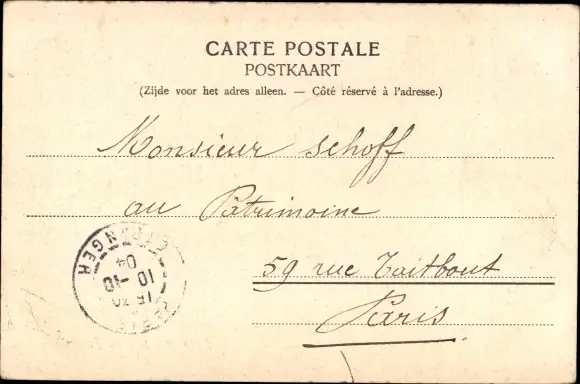 CARTE POSTALE
POSTKAART
(Zijde voor het adres alleen. — Côté réservé à l'adresse.)
Monsieur Schoff
au Patrimoine
59 rue Taitbout
Paris
ETRANGER
15 30
10 -10
04